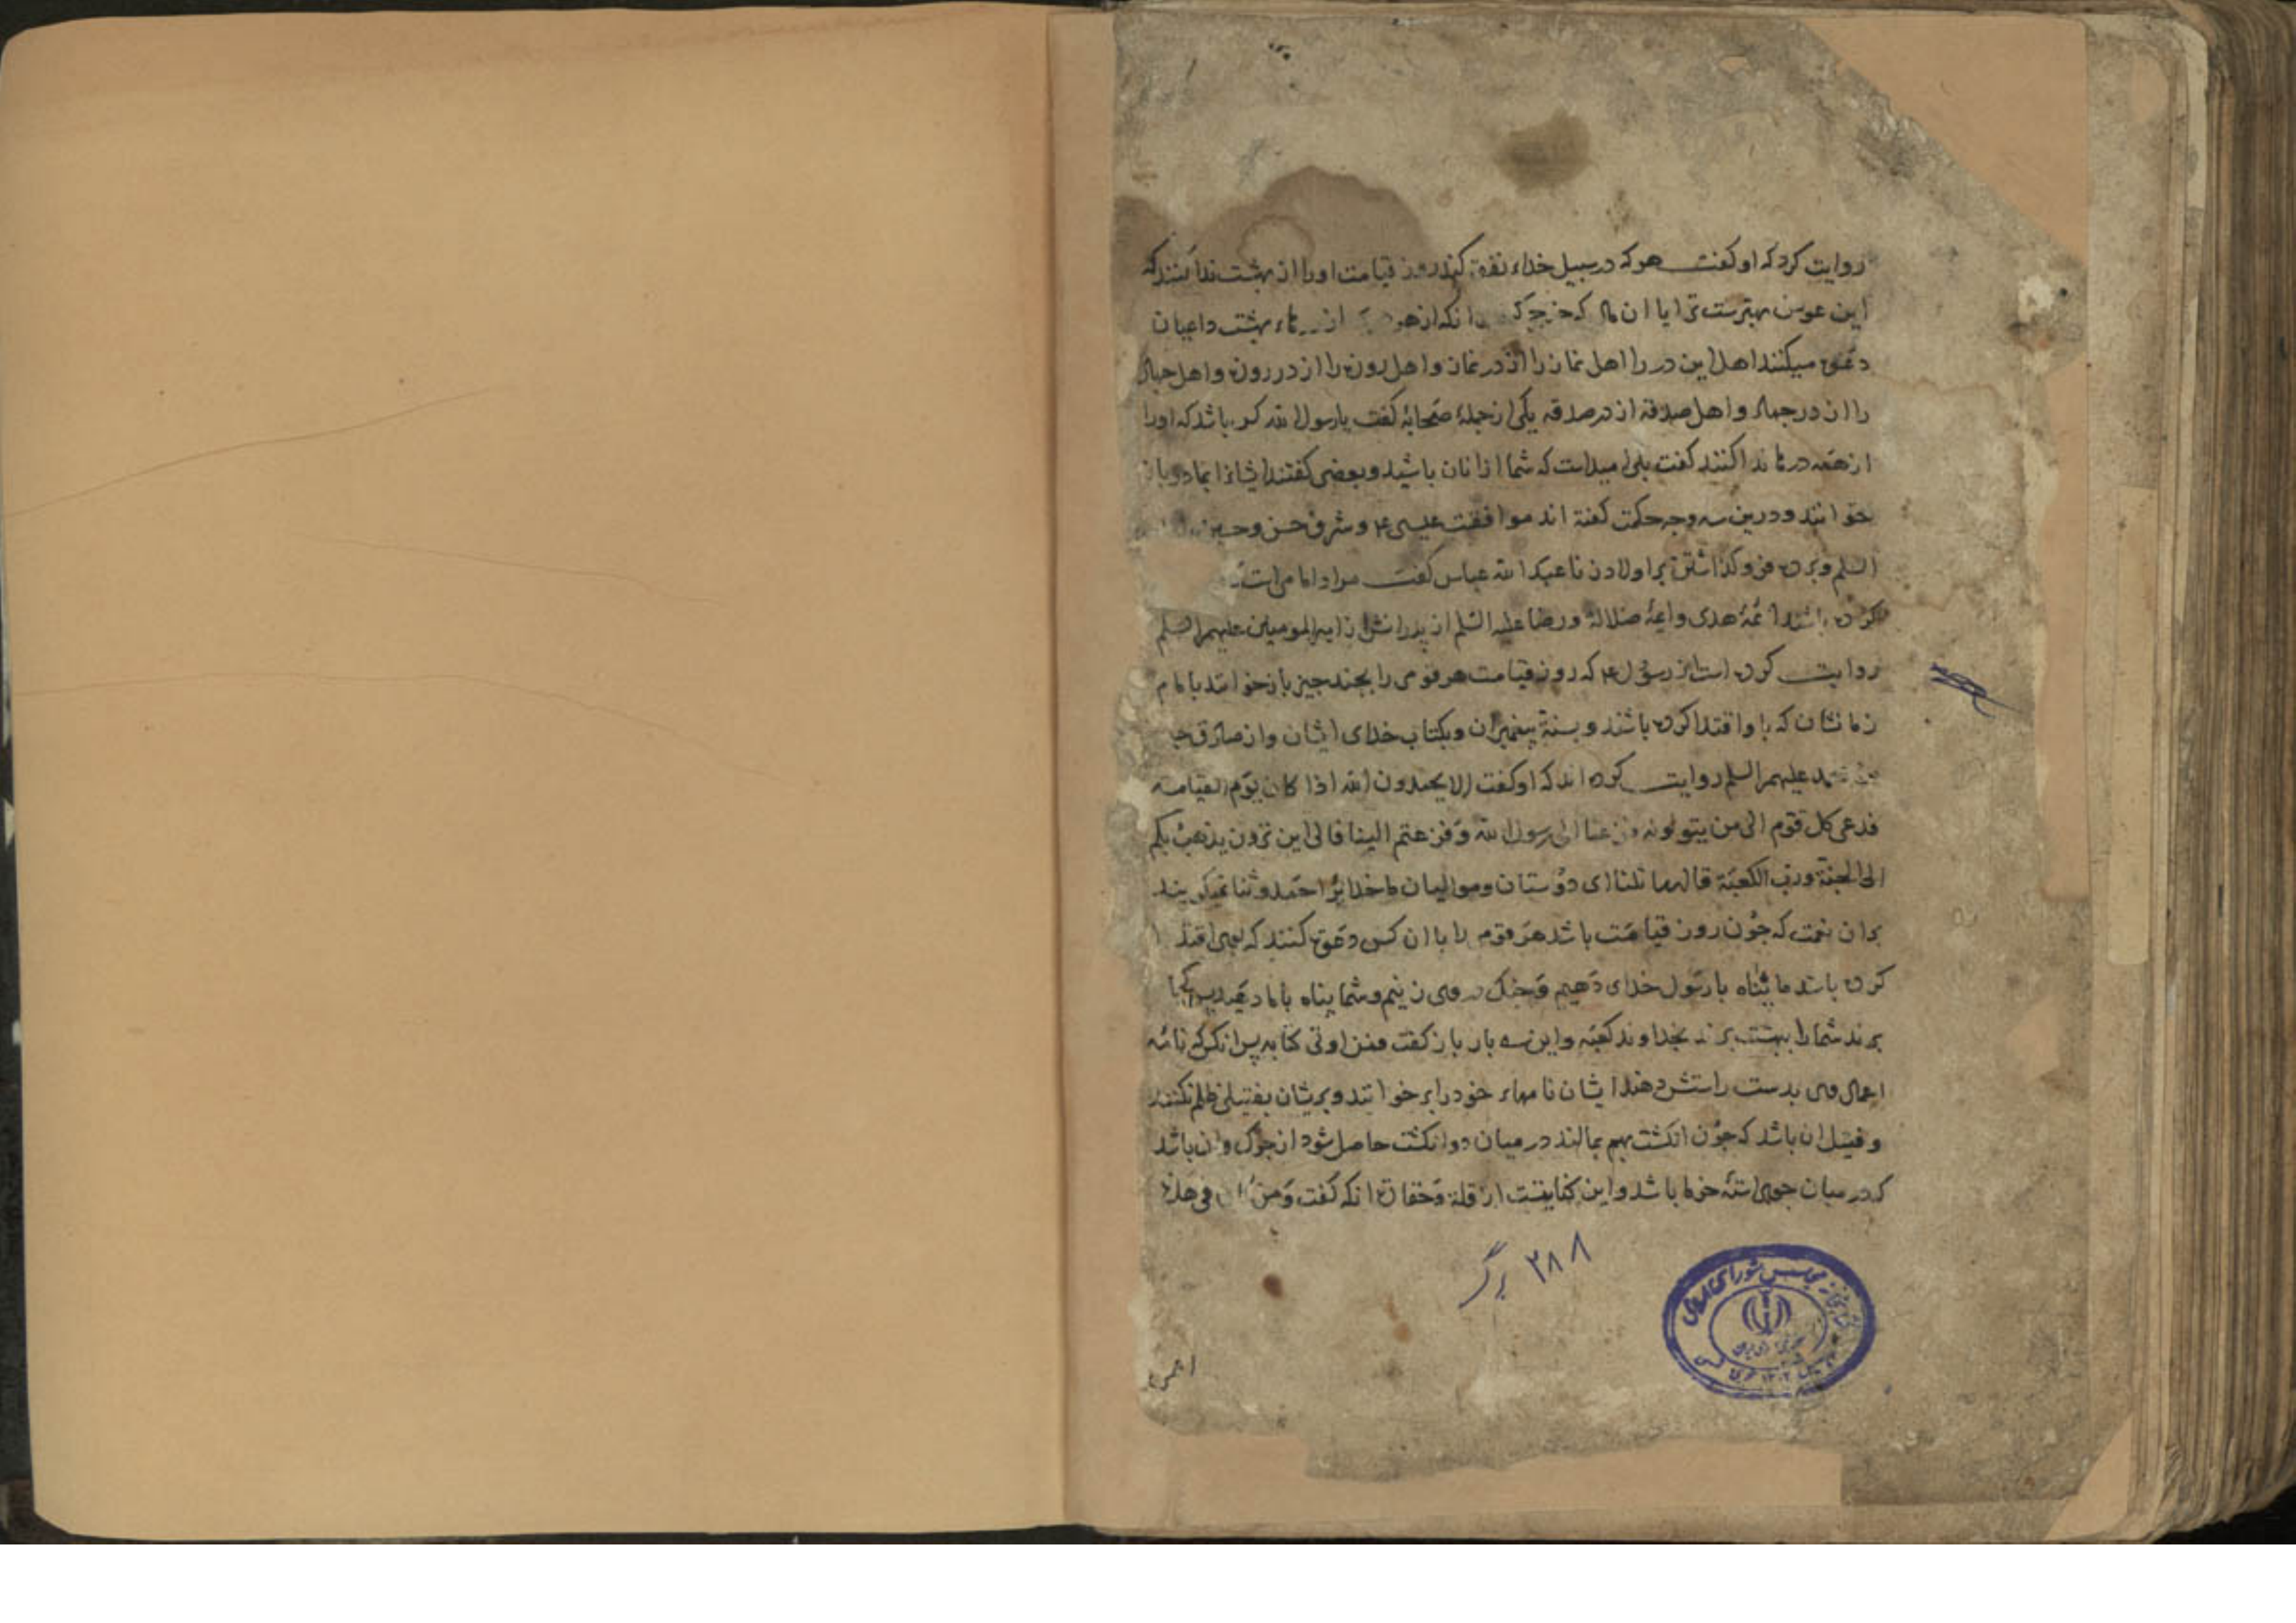 روایت کرد که او گفت هر که در سبیل خداء نفقه کند روز قیامت او را از بهشت ندا کنند که
این عوض بهترست ترا یا ان مال که خرج و انکه از هر از بهشت داعیان
دعوة میکنند اهل این در را اهل نماز را از در نماز و اهل روزه را از در روزه و اهل جهاد
را از در جهاد و اهل صدقه از در صدقه یکی از جمله صحابه گفت یا رسول الله کس باشد که او را
از همه درها ندا کنند گفت بلی امیدست که شما ازانان باشید و بعضی گفتند ایشانرا
خوانند و درین سه وجه حکمت گفته اند موافقت عیسی ع و شرف حسن و حسین
السلم و پرده فرو گذاشتن بر اولاد زنا عبد الله عباس گفت مراد امامی است
کرده باشند ائمه هدی و ائمه ضلالة و رضا علیه السلم از پدرانش از امیر المومنین علیهم السلم
روایت کرده است از رسول ع که روز قیامت هر قومی را بچند چیز باز خوانند بامام
زمانشان که باو اقتدا کرده باشند و بسنة پیغمبران و بکتاب خدای ایشان و از صادق
محمد علیهم السلم روایت کرده اند که او گفت الا یحمدون الله اذا کان یوم القیامه
فدعی کل قوم الی من یتولونه و فزعنا الی رسول الله و فزعتم الینا فالی این ترون یذهب بکم
الی الجنة و رب الکعبة قالها ثلثا ای دوستان و موالیان ما خدایرا حمد و ثنا نمیگویند
بران نعمت که چون روز قیامت باشد هر قوم را باان کس دعوة کنند که بوی اقتدا
کرده باشد ما پناه با رسول خدای دهیم و چنک در وی زنیم و شما پناه باما دهید پس کجا
برند شما را ببهشت برند بخداوند کعبه و این سه بار باز گفت فمن اوتی کتابه پس انکس که نامه
اعمال وی بدست راستش دهند ایشان نامهاء خود را بر خوانند و بریشان بفتیلی ظلم نکنند
و فتیل ان باشد که چون انکشت بهم بمالند در میان دو انکشت حاصل شود از چرک و ان باشد
که در میان جوی استه خرما باشد و این کنایتست از قلة و حقارة انکه گفت و من کان فی هذه
۲۸۸ برگ
اعمی
مجلس شورای اسلامی